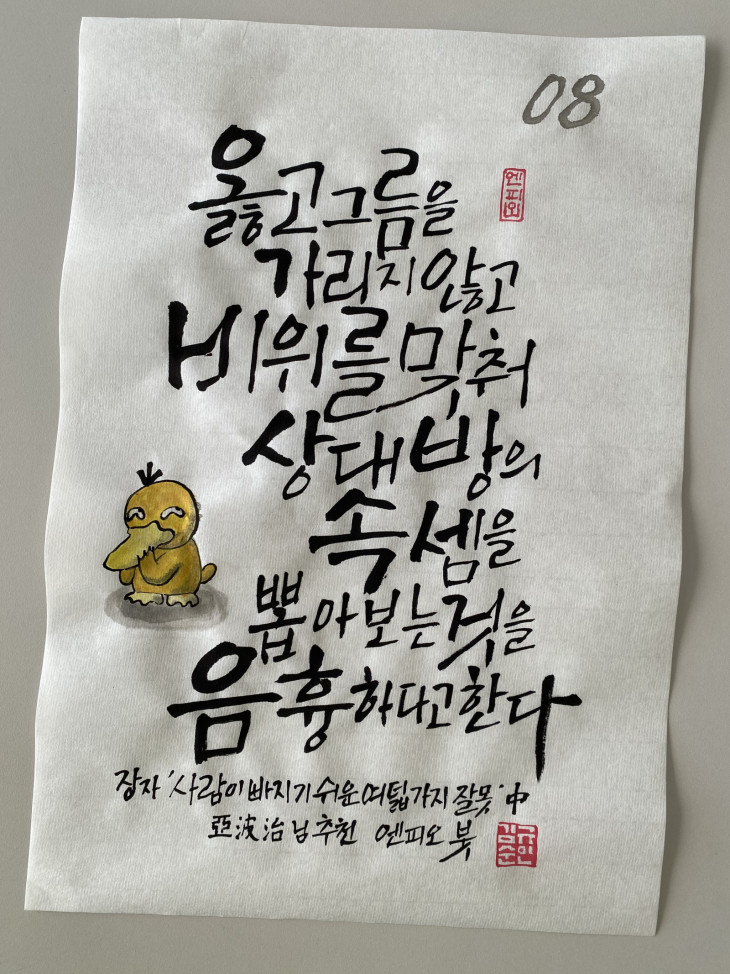 08
엔피오
옳고그름을
가리지않고
비위를맞춰
상대방의
속셈을
뽑아보는것을
음흉하다고한다
장자 '사람이빠지기쉬운여덟가지잘못'中
亞波治님추천 엔피오 붓
김규
순인